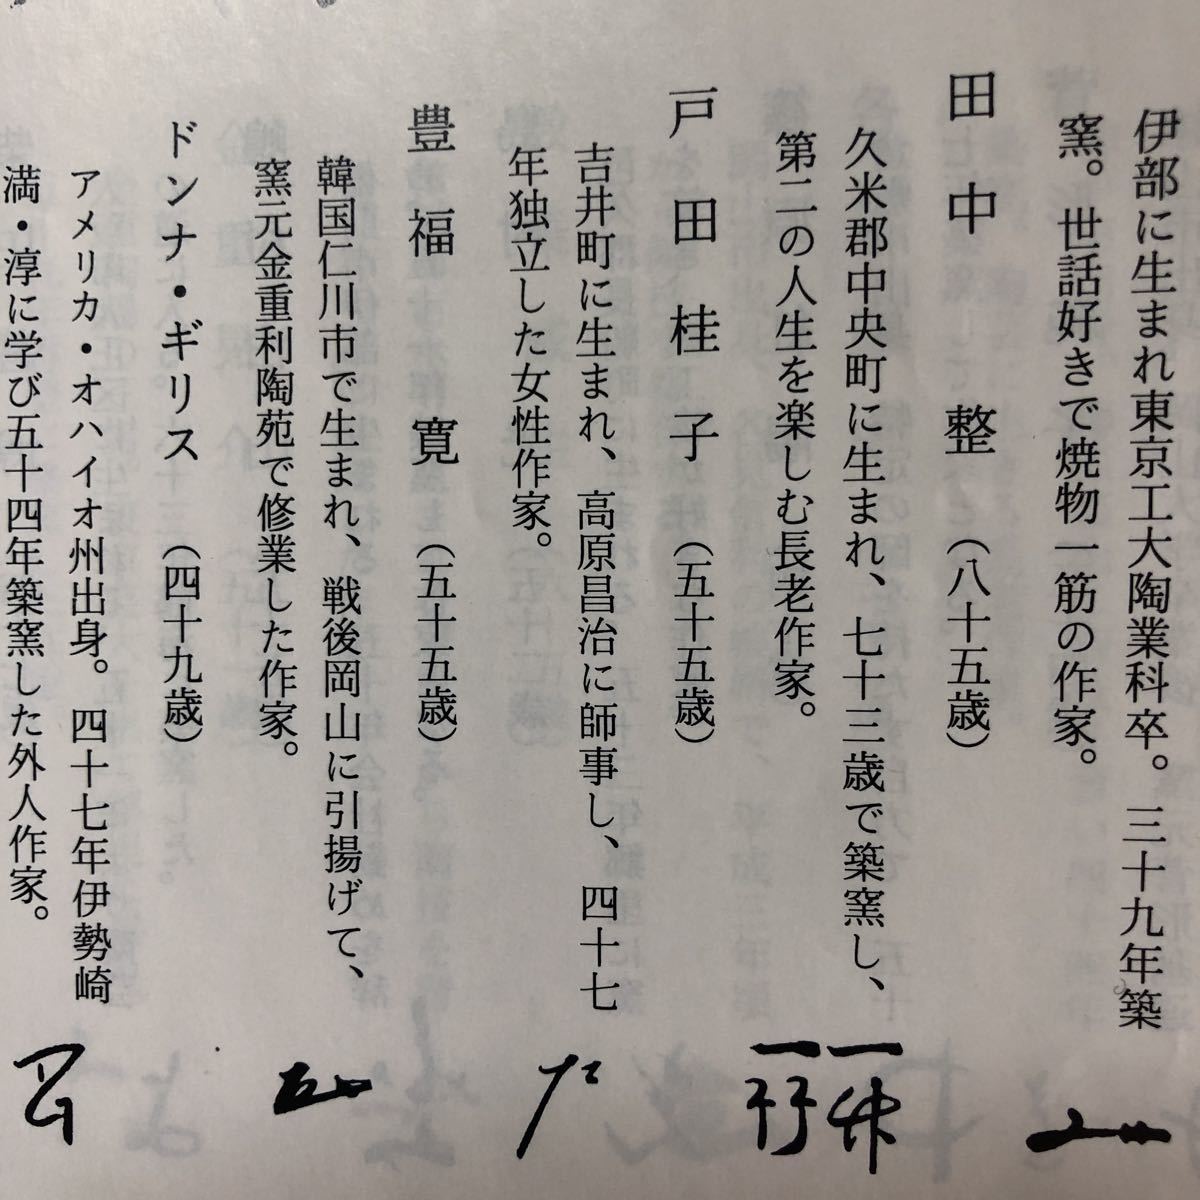 伊部に生まれ東京工大陶業科卒。三十九年築
窯。世話好きで焼物一筋の作家。
田中整(八十五歳)
久米郡中央町に生まれ、七十三歳で築窯し、
第二の人生を楽しむ長老作家。
戸田桂子(五十五歳)
吉井町に生まれ、高原昌治に師事し、四十七
年独立した女性作家。
豊福寛(五十五歳)
韓国仁川市で生まれ、戦後岡山に引揚げて、
窯元金重利陶苑で修業した作家。
ドンナ・ギリス(四十九歳)
アメリカ・オハイオ州出身。四十七年伊勢崎
満・淳に学び五十四年築窯した外人作家。